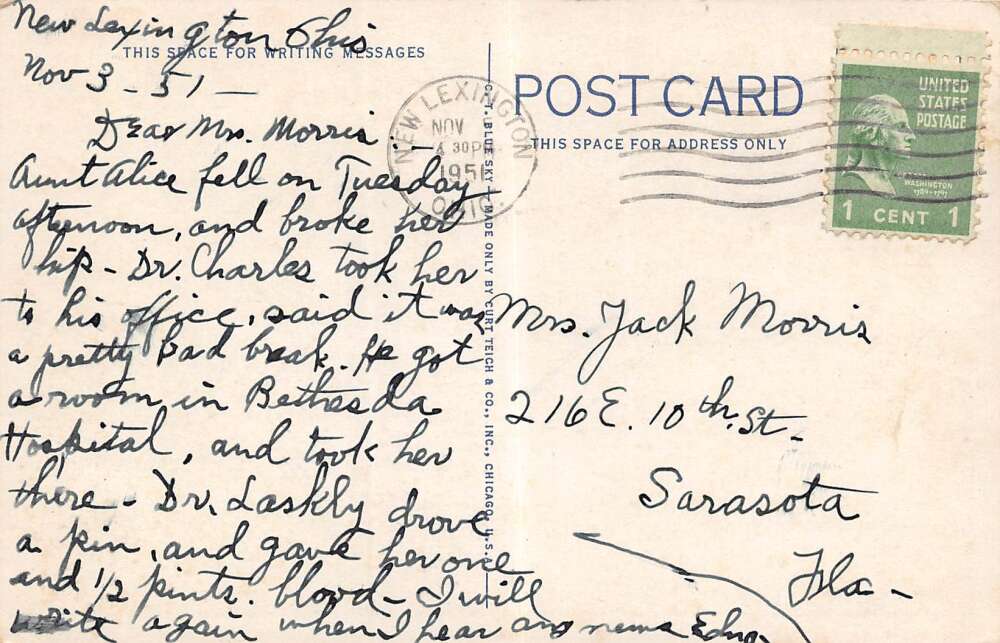 New Lexington Ohio
THIS SPACE FOR WRITING MESSAGES
Nov 3 - 51 -
Dear Mrs. Morris -
Aunt Alice fell on Tuesday
afternoon, and broke her
hip - Dr. Charles took her
to his office, said it was
a pretty bad break. He got
a room in Bethesda
Hospital, and took her
there - Dr. Laskly drove
a pin, and gave her one
and 1/2 pints. blood - I will
write again when I hear any news Edna
C.T. BLUE SKY - MADE ONLY BY CURT TEICH & CO., INC., CHICAGO, U.S.A.
POST CARD
THIS SPACE FOR ADDRESS ONLY
NEW LEXINGTON
NOV
4 30 PM
1951
OHIO
UNITED
STATES
POSTAGE
WASHINGTON
1789-1797
1 CENT 1
Mrs. Jack Morris
216 E. 10th. St.
Sarasota
Fla -